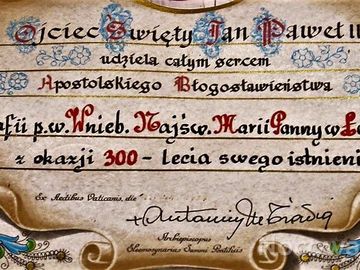 Ojciec Święty Jan Paweł II
udziela całym sercem
Apostolskiego Błogosławieństwa
afii p.w. Wnieb. Najśw. Marii Panny w
z okazji 300-lecia swego istnieni
Ex Aedibus Vaticanis, die
Archiepiscopus
Eleemosynarius Summi Pontificis